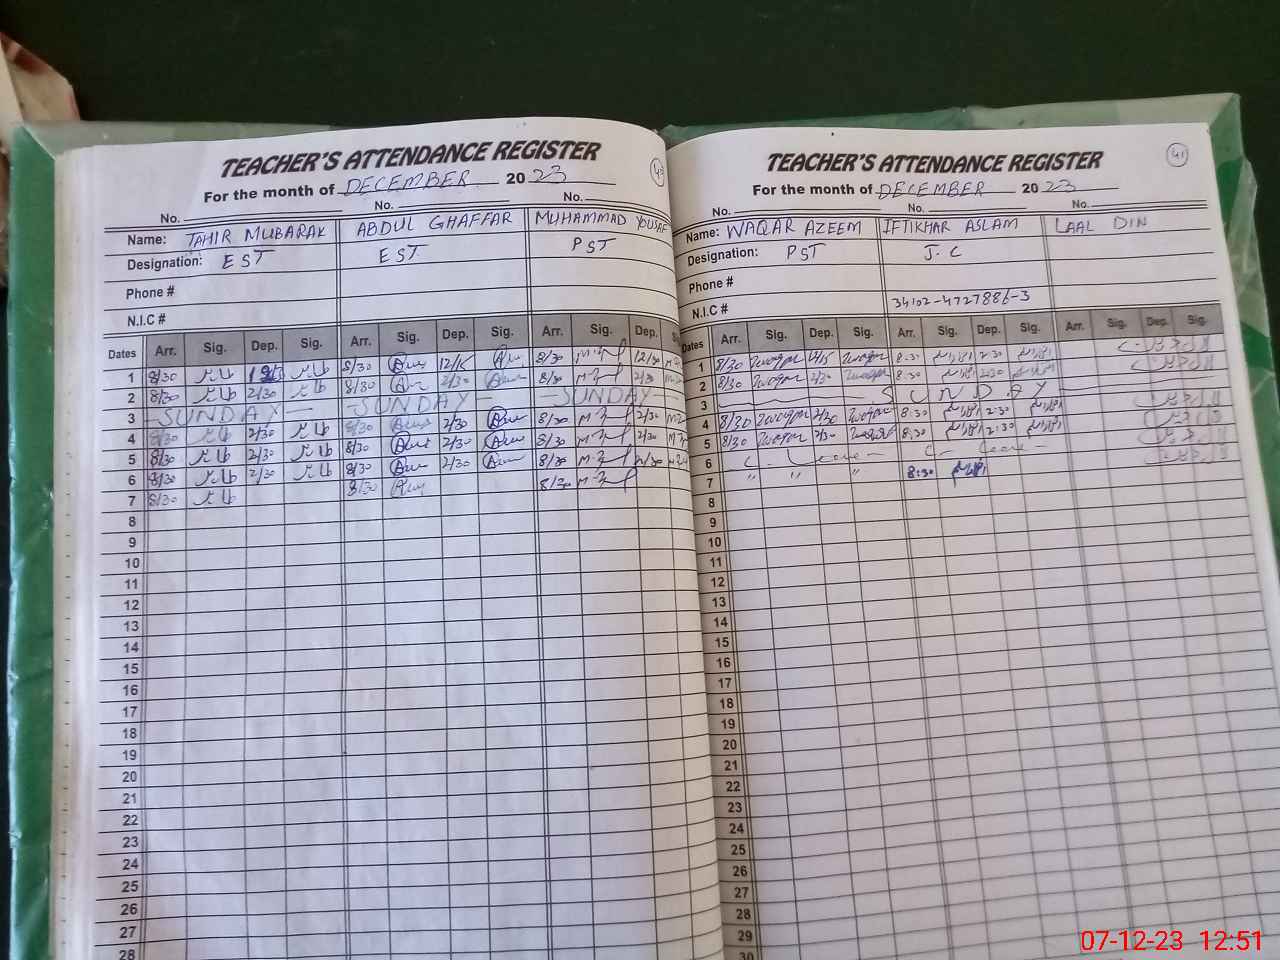 TEACHER'S ATTENDANCE REGISTER
For the month of DECEMBER 2023
No. No. No.
Name: TAHIR MUBARAK ABDUL GHAFFAR MUHAMMAD YOUSAF
Designation: EST EST PST
Phone #
N.I.C #
Dates Arr. Sig. Dep. Sig. Arr. Sig. Dep. Sig. Arr. Sig. Dep.
1 8/30 طاہر طاہر 8/30 12/15 8/30 12/30
2 8/30 طاہر 2/30 طاہر 8/30 2/30 8/30 2/30
3 —SUNDAY— —SUNDAY— —SUNDAY—
4 8/30 طاہر 2/30 طاہر 8/30 2/30 8/30 2/30
5 8/30 طاہر 2/30 طاہر 8/30 2/30 8/30 2/30
6 8/30 طاہر 2/30 طاہر 8/30 2/30 8/30 2/30
7 8/30 طاہر 8/30 8/30
8
9
10
11
12
13
14
15
16
17
18
19
20
21
22
23
24
25
26
27
28
TEACHER'S ATTENDANCE REGISTER 41
For the month of DECEMBER 2023
No. No. No.
Name: WAQAR AZEEM IFTIKHAR ASLAM LAAL DIN
Designation: PST J.C
Phone #
N.I.C # 34102-4727886-3
Dates Arr. Sig. Dep. Sig. Arr. Sig. Dep. Sig. Arr. Sig. Dep. Sig.
1 8/30 Waqar Waqar 8:30 2:30 لال دین
2 8/30 Waqar 2/30 Waqar 8:30 2:30 لال دین
3 SUNDAY
4 8/30 Waqar 2/30 Waqar 8:30 2:30 لال دین
5 8/30 Waqar 2/30 Waqar 8:30 2:30 لال دین
6 C. Leave — C. Leave — لال دین
7 " " " 8:30
8
9
10
11
12
13
14
15
16
17
18
19
20
21
22
23
24
25
26
27
28
29
30
07-12-23 12:51